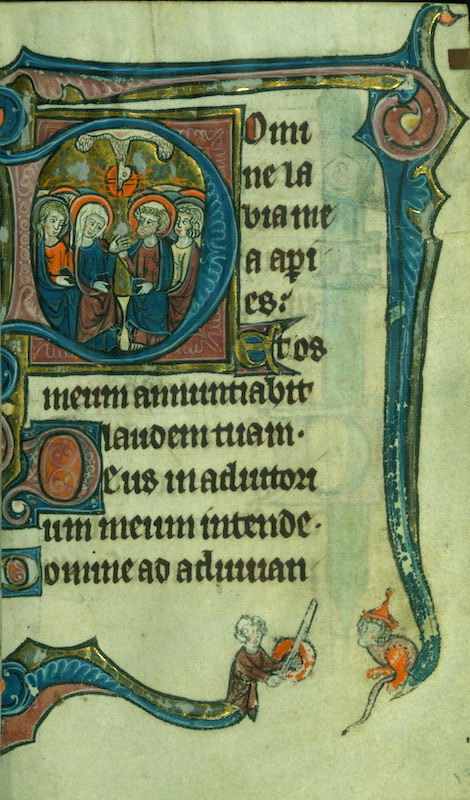 Domi
ne la
bia me
a apı
es:
Et os
meum annuntiabit
laudem tuam.
Deus in adiutori
um meum intende.
Domine ad adiuuan